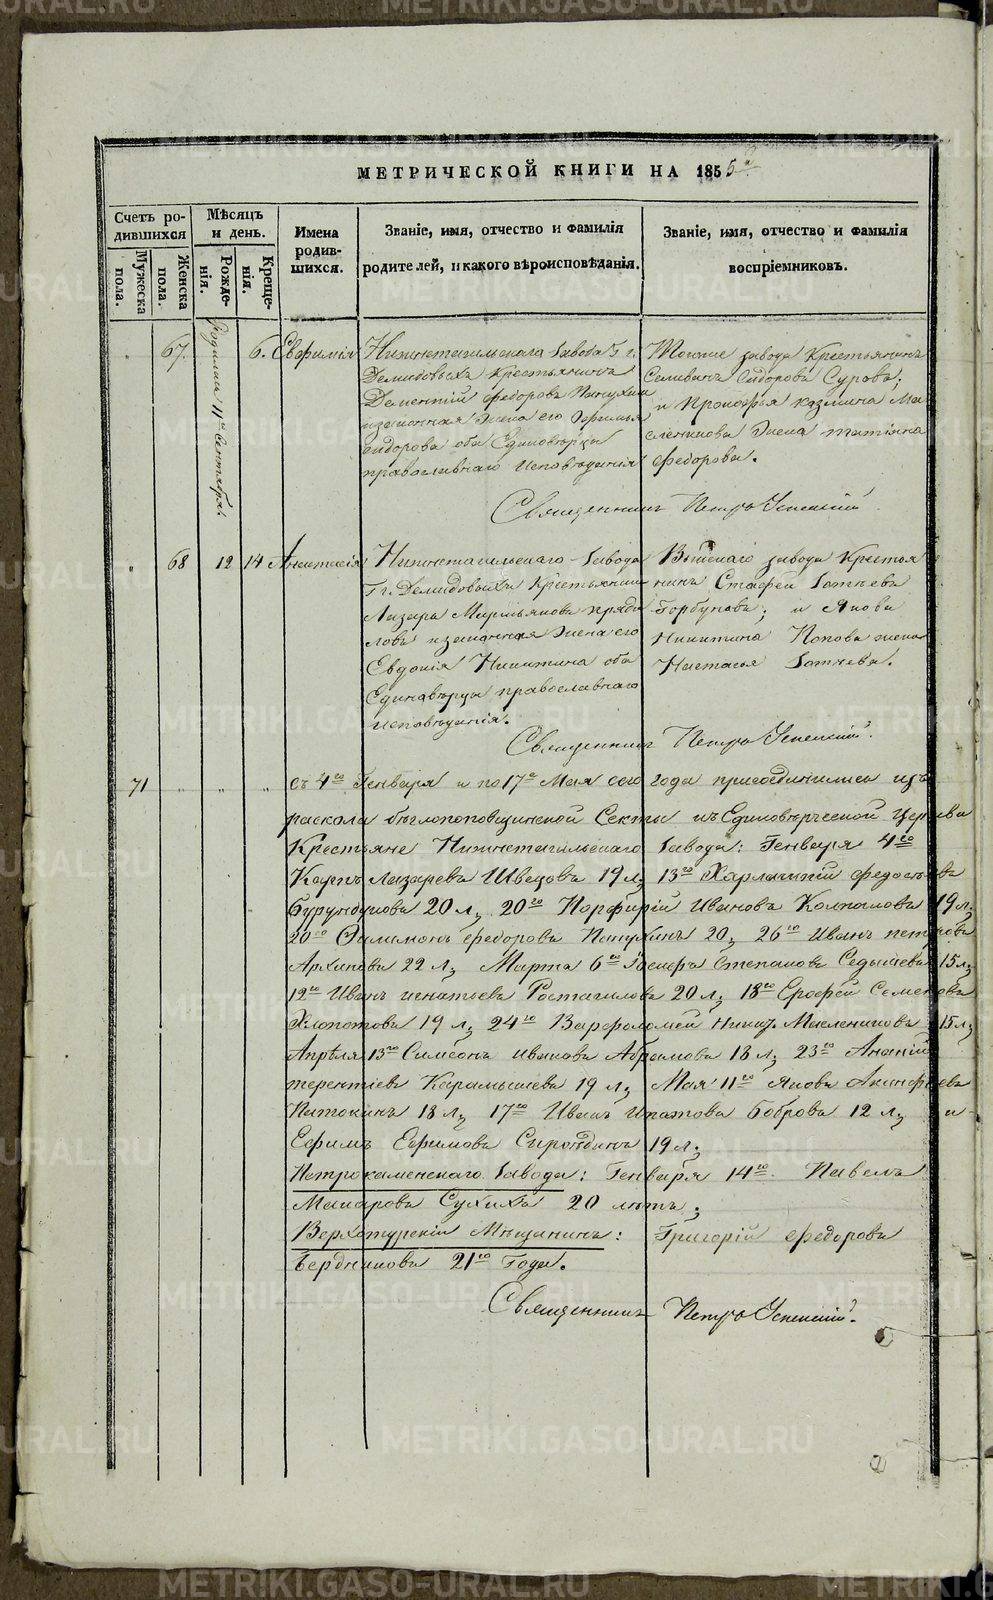 МЕТРИЧЕСКОЙ КНИГИ НА 1855й
Счетъ ро-
дившихся
Мужеска
пола.
Женска
пола.
Мѣсяцъ
и день.
Рожде-
нія.
Креще-
нія.
Имена
родив-
шихся.
Званіе, имя, отчество и фамилія
родителей, и какого вѣроисповѣданія.
Званіе, имя, отчество и фамилія
воспріемниковъ.
67.
Родилась 11го Сентября
6.
Евфимія
Нижнетагильскаго Завода Г. г.
Демидовыхъ Крестьянинъ
Дементій Федоровъ Патухин
изаконная Жена его Евфимья
Сидорова оба Единовѣрцы
православнаго Исповѣданія
Тогоже завода Крестьянинъ
Селиванъ Сидоровъ Суровъ;
и Прокофья Казмина Ма
сленикова Жена татіяна
Федорова.
Священникъ Петръ Успенскій
68
12
14
Анастасія
Нижнетагильскаго Завода
Г. г. Демидовыхъ Крестьянин
Лазарь Мартьяновъ пряди
ловъ изаконная Жена его
Евдокія Никитина оба
Единовѣрцы православнаго
исповѣданія.
Выйскаго завода Крестья
нинъ Стафей Зотеевъ
Горбуновъ; и Якова
Никитина Попова жена
Настасья Зотеева.
Священникъ Петръ Успенскій.
71
съ 4го Генваря и по 17е Мая сего года присоединились изъ
раскола бѣглопоповщинской Секты къ Единовѣрческой Церкви
Крестьяне Нижнетагильскаго Завода: Генваря 4го
Карпъ Лазаревъ Швецовъ 19 л, 13го Харлампій Федосѣевъ
Бурундуковъ 20 л, 20го Порфирій Ивановъ Колпаковъ 19 л,
20го Филимонъ Федоровъ Патухинъ 20, 26го Иванъ петровъ
Архиповъ 22 л, Марта 6го Степановъ Седышевъ 15 л,
12го Иванъ игнатьевъ 20 л, 18го Ерофей Семеновъ
Хлопотовъ 19 л, 24го Варфоломей Никит. Маслениковъ 15 л,
Апрѣля 13го Симеонъ ивановъ Абрамовъ 18 л, 23го Ананій
терентіевъ Карамышевъ 19 л, Мая 11го Яковъ Акинфіевъ
Пятокинъ 18 л, 17го Иванъ Ипатовъ Бобровъ 12 л, и
Ефимъ Ефимовъ 19 л;
Петрокаменскаго Завода: Генваря 14го Павелъ
Макаровъ Сухихъ 20 лѣтъ;
Верхотурскій Мѣщанинъ: Григорій Федоровъ
Бердниковъ 21го Года.
Священникъ Петръ Успенскій.
METRIKI.GASO-URAL.RU